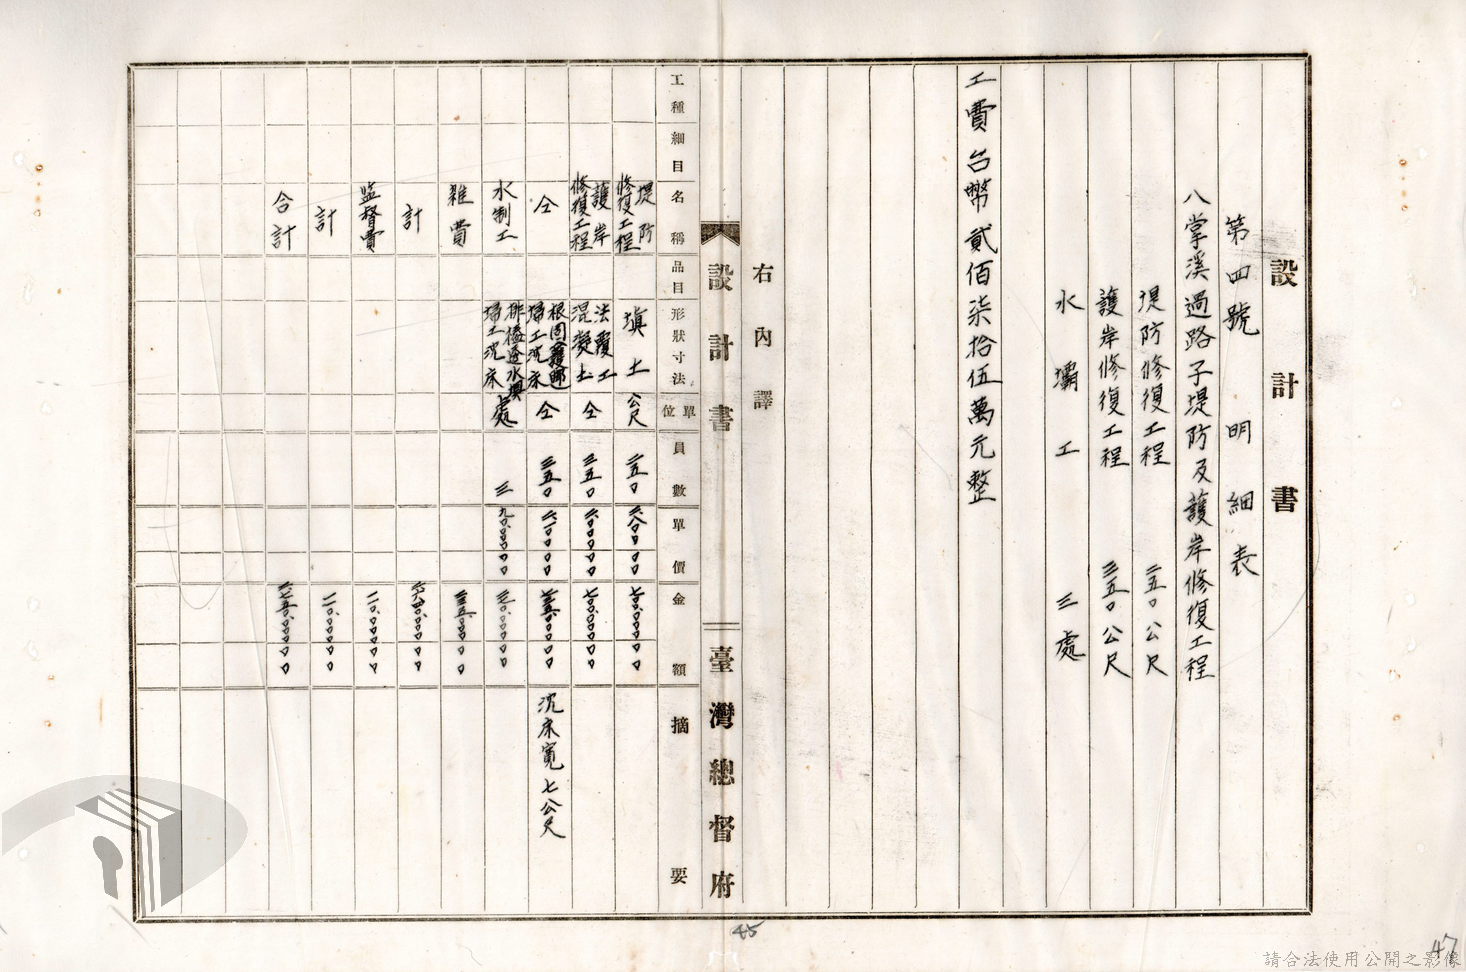 設計書
第四號 明細表
八掌溪過路子堤防及護岸修復工程
堤防修復工程 二五〇公尺
護岸修復工程 三五〇公尺
水壩工 三處
工費台幣貳佰柒拾伍萬元整
右內譯
設計書 臺灣總督府
工種 細目 名稱 品目 形狀寸法 單位 員數 單價 金額 摘要
堤防修復工程 填土 公尺 二五〇 二,八〇〇 〇〇 七〇〇,〇〇〇 〇〇
護岸修復工程 法覆工混凝土 仝 三五〇 二,〇〇〇 〇〇 七〇〇,〇〇〇 〇〇
仝 根固(護腳)掃工沈床 仝 三五〇 二,一〇〇 〇〇 七三五,〇〇〇 〇〇 沈床寬七公尺
水制工 排樁透水壩掃工沈床 處 三 九〇,〇〇〇 〇〇 二七〇,〇〇〇 〇〇
雜費 二三五,〇〇〇 〇〇
計 二,六四〇,〇〇〇 〇〇
監督費 一一〇,〇〇〇 〇〇
計 一一〇,〇〇〇 〇〇
合計 二,七五〇,〇〇〇 〇〇
45
47
請合法使用公開之影像